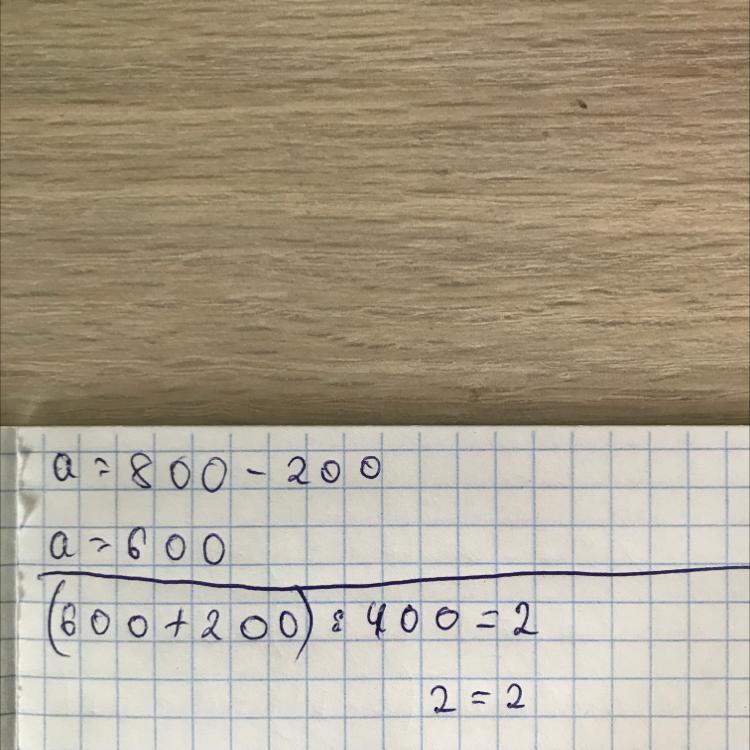 a = 800 - 200
a = 600
(600 + 200) : 400 = 2
2 = 2